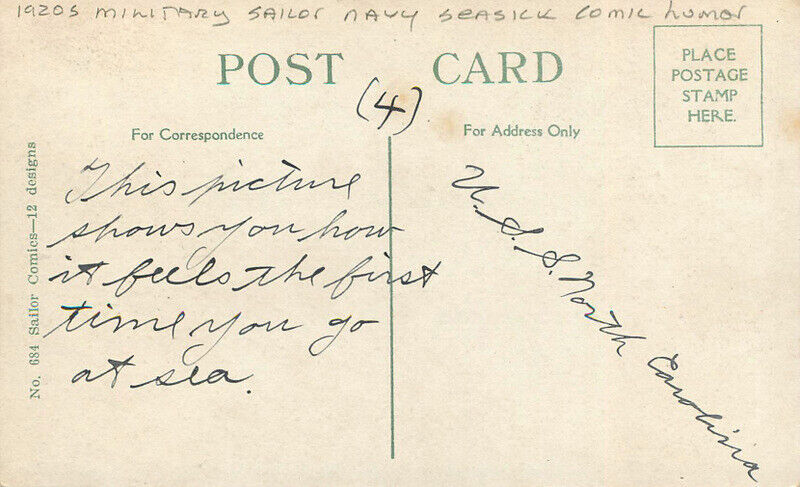 1920s MILITARY SAILOR NAVY SEASICK COMIC humor
POST CARD
(4)
PLACE
POSTAGE
STAMP
HERE.
For Correspondence
For Address Only
No. 684 Sailor Comics—12 designs
This picture
shows you how
it feels the first
time you go
at sea.
U.S.S. North Carolina